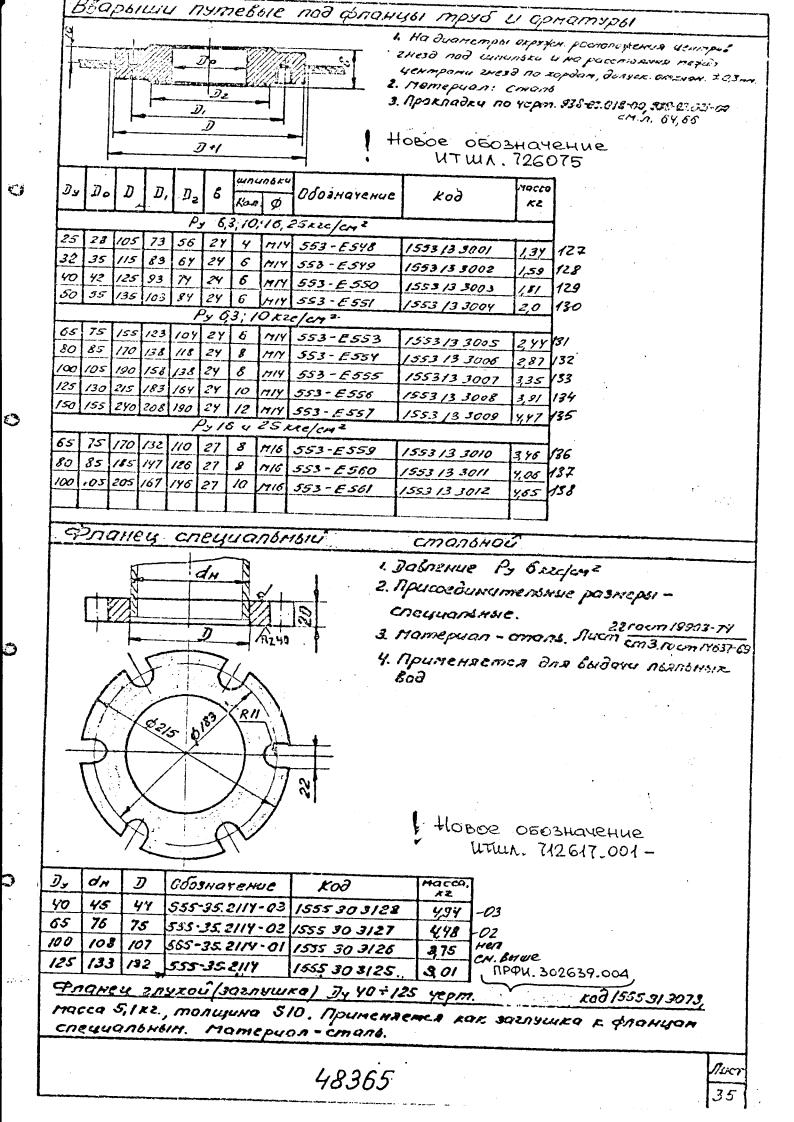 Вварыши путевые под фланцы труб и арматуры
1. На диаметры окружн. расположения центров
гнезд под шпильки и на расстояния между
центрами гнезд по хордам, допуск. отклон. ±0,3мм.
2. Материал: Сталь
3. Прокладки по черт.
см.л. 64,65
! Новое обозначение
ИТШЛ. 726075
D0
D2
D1
D
D+1
Ду D0 D D1 D2 в шпильки Обозначение Код масса кг
Кол. Ф
Ру 6,3; 10; 16, 25 кгс/см²
25 28 105 73 56 24 4 М14 553-Е548 155313 3001 1,34 127
32 35 115 83 64 24 6 М14 553-Е549 155313 3002 1,59 128
40 42 125 93 74 24 6 М14 553-Е550 155313 3003 1,81 129
50 55 135 103 84 24 6 М14 553-Е551 155313 3004 2,0 130
Ру 6,3; 10 кгс/см²
65 75 155 123 104 24 6 М14 553-Е553 155313 3005 2,44 131
80 85 170 138 118 24 8 М14 553-Е554 155313 3006 2,87 132
100 105 190 158 138 24 8 М14 553-Е555 155313 3007 3,35 133
125 130 215 183 164 24 10 М14 553-Е556 155313 3008 3,91 134
150 155 240 208 190 24 12 М14 553-Е557 155313 3009 4,47 135
Ру 16 и 25 кгс/см²
65 75 170 132 110 27 8 М16 553-Е559 155313 3010 3,46 136
80 85 185 147 126 27 8 М16 553-Е560 155313 3011 4,06 137
100 105 205 167 146 27 10 М16 553-Е561 155313 3012 4,65 138
Фланец специальный стальной
1. Давление Ру 6 кгс/см²
2. Присоединительные размеры –
специальные.
3. Материал – сталь. Лист 22 гост 19903-74
ст3. гост 14637-69
4. Применяется для выдачи льяльных
вод
dн
D
20
Rz40
ф215
ф183
R11
22
! Новое обозначение
ИТШЛ. 712617.001 –
Ду dн D Обозначение Код масса, кг
40 45 44 555-35.2114-03 155530 3128 4,94 -03
65 76 75 555-35.2114-02 155530 3127 4,48 -02
100 108 107 555-35.2114-01 155530 3126 3,75 нет
125 133 132 555-35.2114 155530 3125 3,01 см. выше
ПРФИ. 302639.004
Фланец глухой (заглушка) Ду 40÷125 черт. код 1555313073,
масса 5,1 кг., толщина S10. Применяется как заглушка к фланцам
специальным. Материал – сталь.
48365
Лист
35